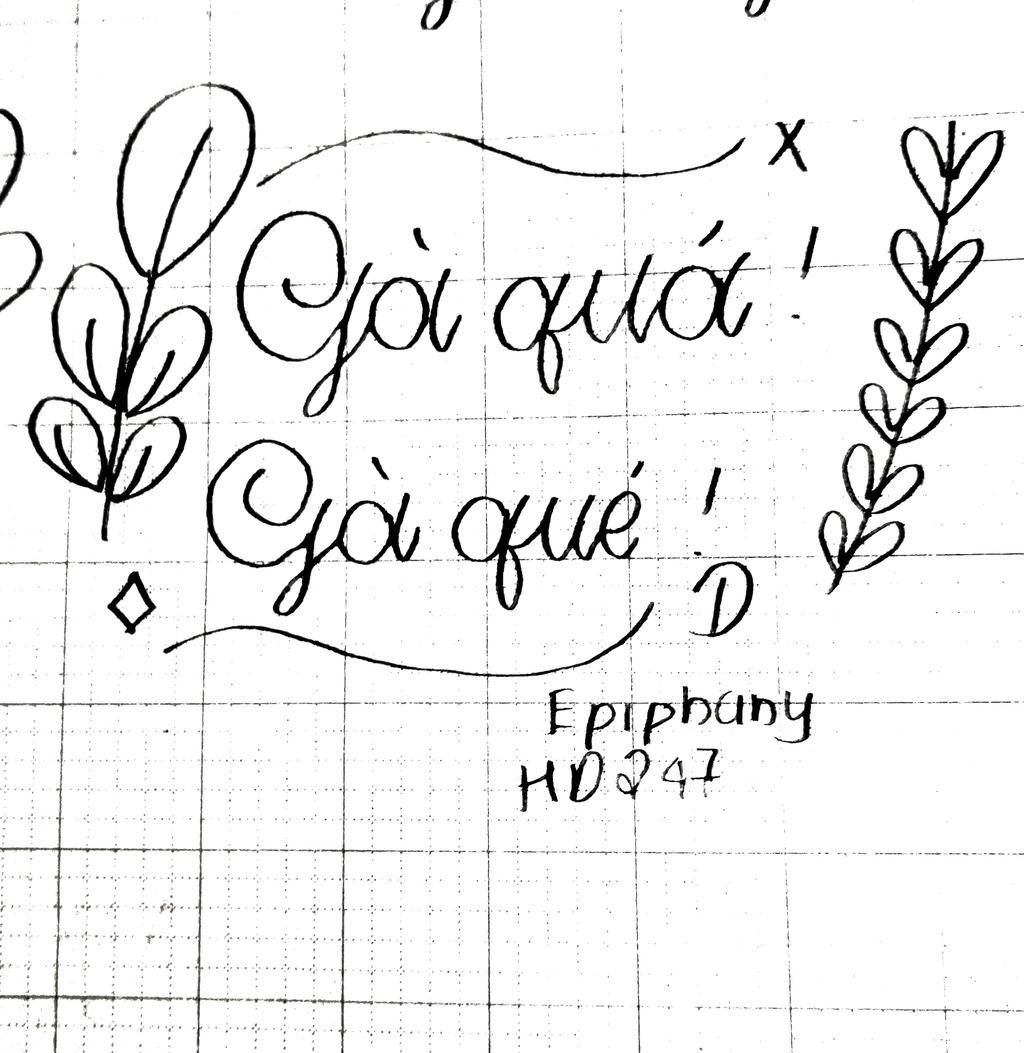 X
Gà quá !
Gà qué !
D
Epiphany
HD247